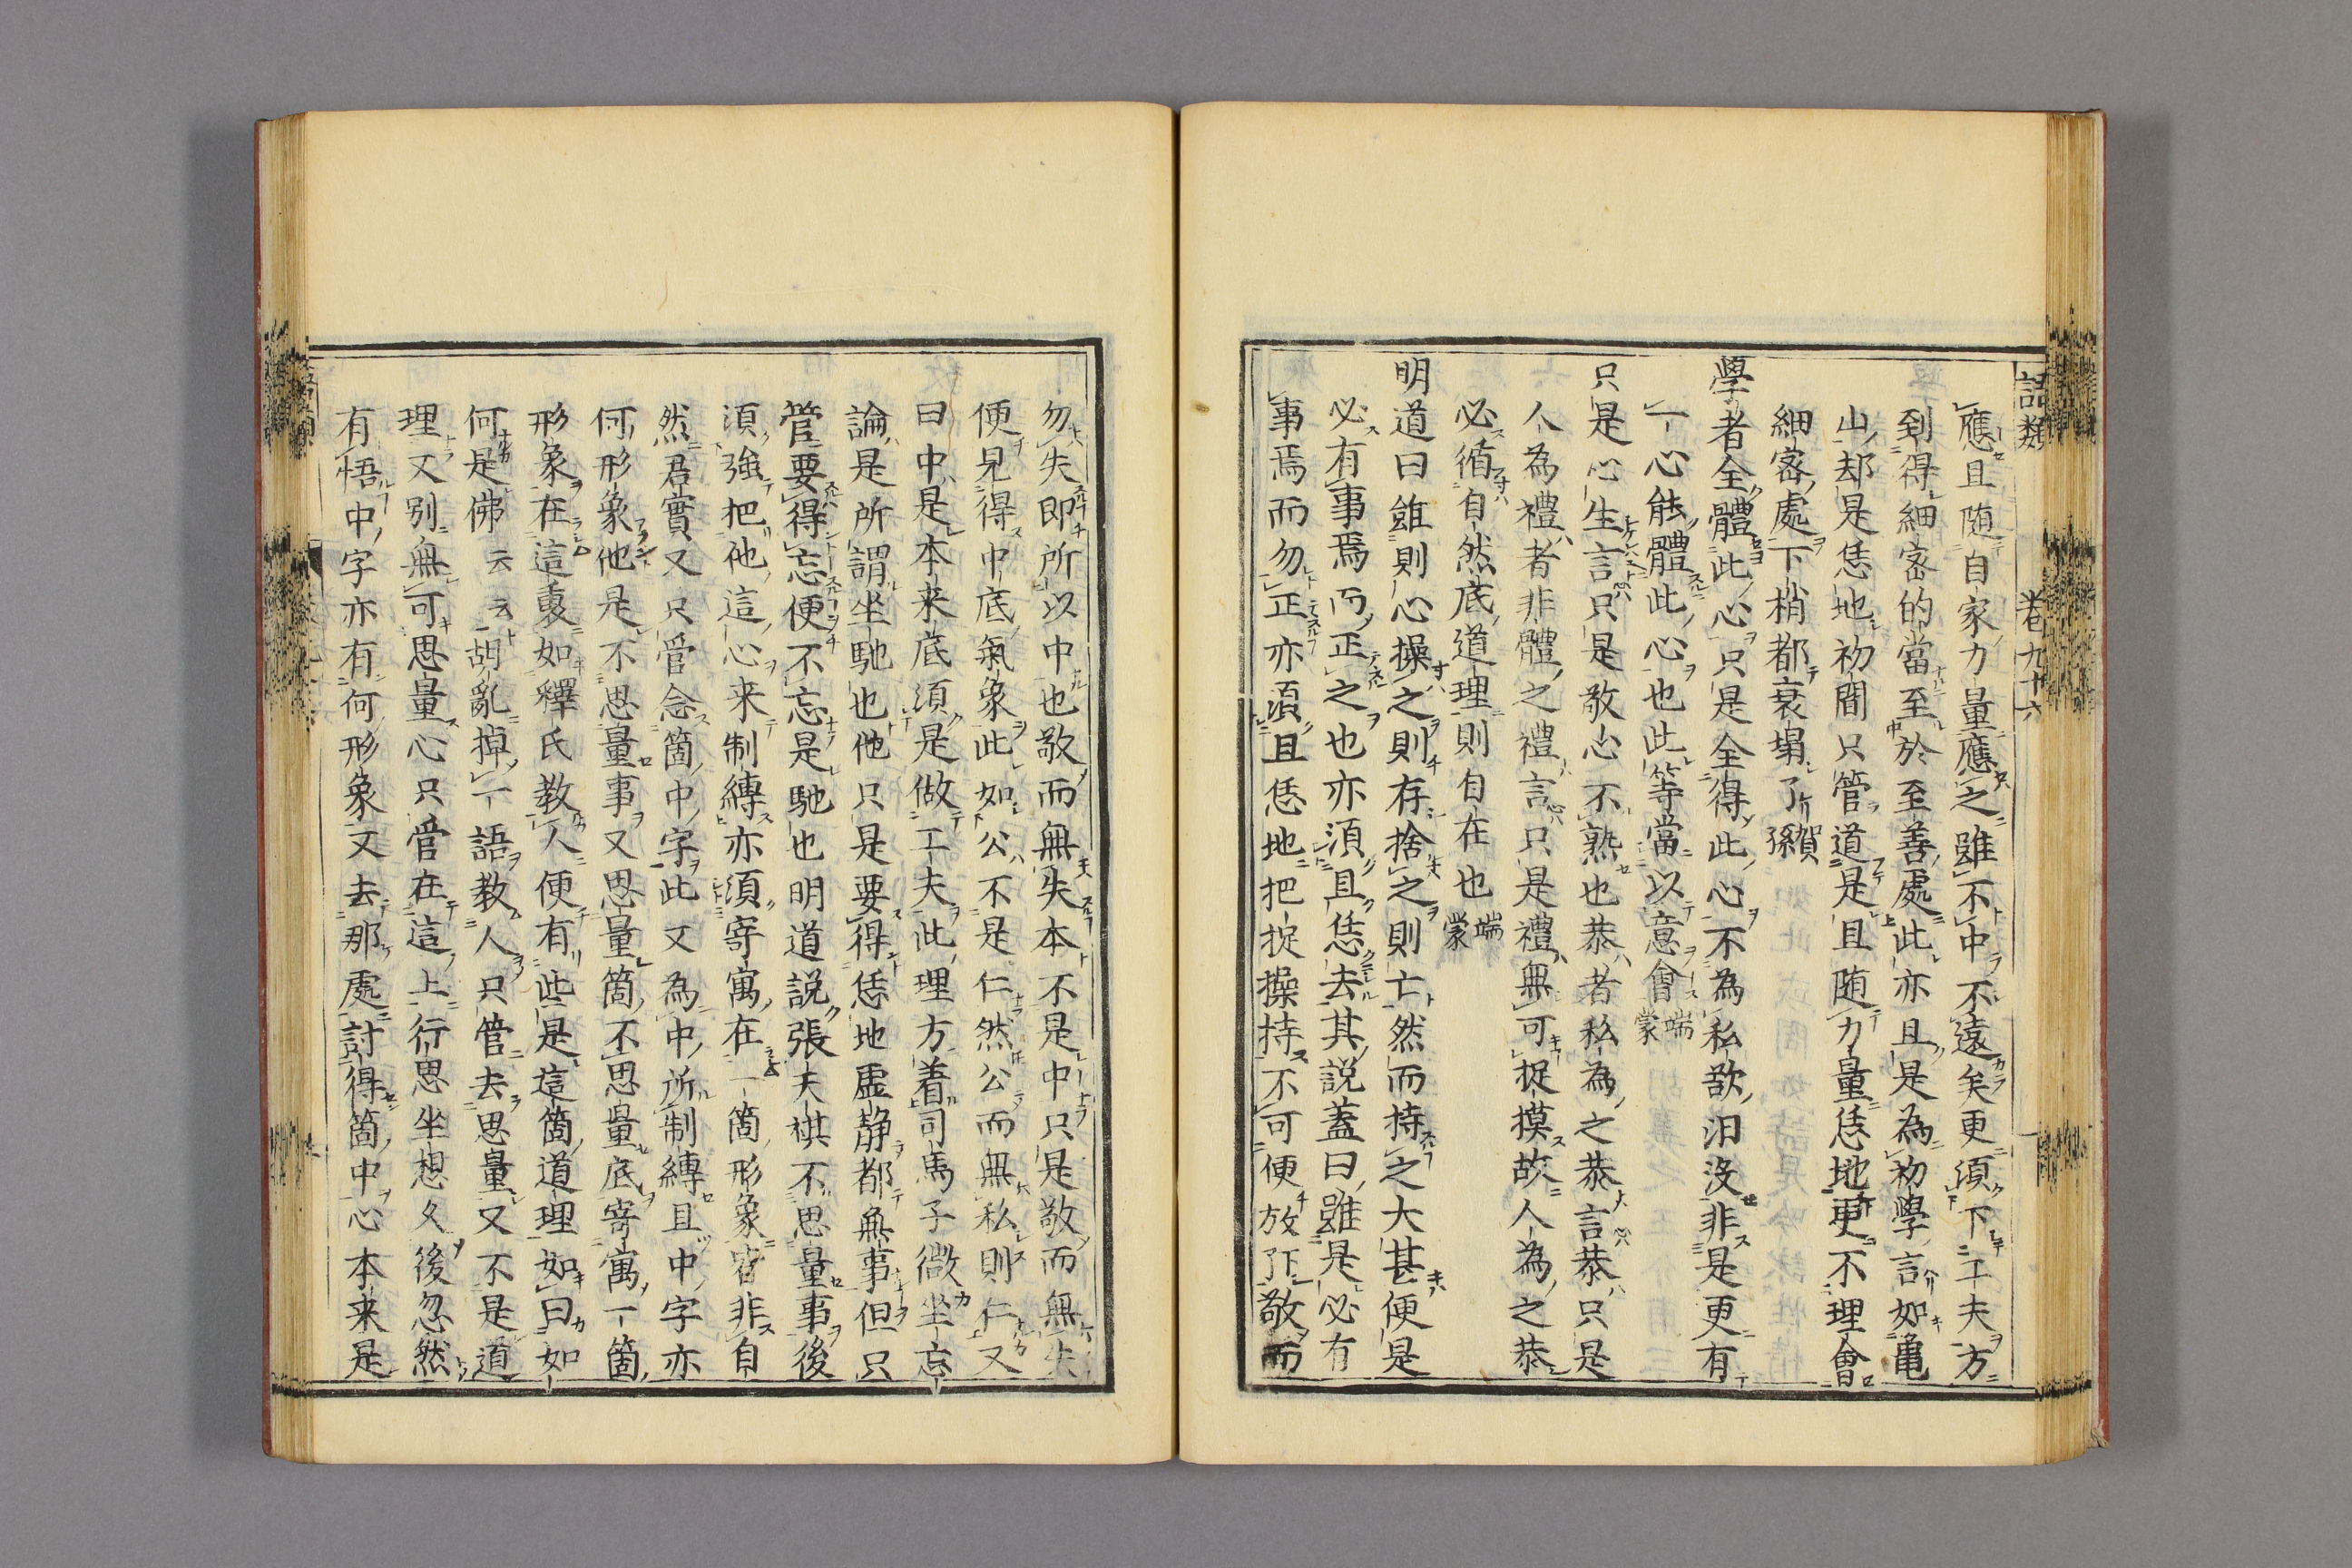 語類
卷九十六
一
應且随自家力量應之雖不中不遠矣更須下工夫方
到得細宻的當至於至善處此亦且是為初學言如亀
山却是恁地初間只管道是且随力量恁地更不理會
細宻處下梢都衰塌了賀孫
學者全體此心只是全得此心不為私欲汨没非是更有
一心能體此心也此等當以意會端蒙
只是心生言只是敬心不熟也恭者私為之恭言恭只是
人為禮者非體之禮言只是禮無可捉摸故人為之恭
必循自然底道理則自在也端蒙
明道曰雖則心操之則存捨之則亡然而持之大甚便是
必有事焉而正之也亦須且恁去其説蓋曰雖是必有
事焉而勿正亦須且恁地把捉操持不可便放下敬而
勿失即所以中也敬而無失本不是中只是敬而無失
便見得中底氣象此如公不是仁然公而無私則仁又
曰中是本来底須是做工夫此理方着司馬子微坐忘
論是所謂坐馳也他只是要得恁地虚静都無事但只
管要得忘便不忘是馳也明道説張天祺不思量事後
須強把他這心来制縳亦須寄寓在一箇形象皆非自
然君實又只管念箇中字此又為中所制縳且中字亦
何形象他是不思量事又思量箇不思量底寄寓一箇
形象在這裏如釋氏教人便有些是這箇道理如曰如
何是佛云云胡亂掉一語教人只管去思量又不是道
理又别無可思量心只管在這上行思坐想久後忽然
有悟中字亦有何形象又去那處討得箇中心本来是